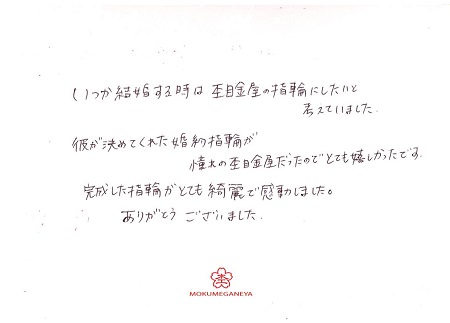 いつか結婚する時は杢目金屋の指輪にしたいと
考えていました.
彼が決めてくれた婚約指輪が
憧れの杢目金屋だったのでとても嬉しかったです.
完成した指輪がとても綺麗で感動しました。
ありがとう ございました.
MOKUMEGANEYA